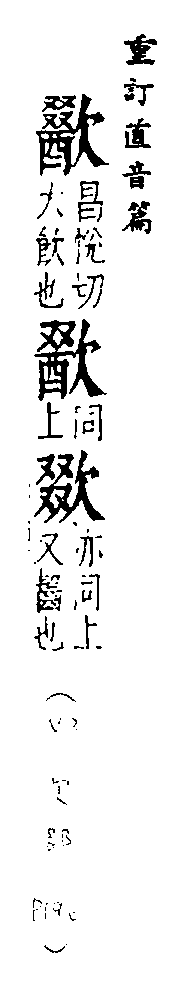 重訂直音篇
歠
昌悅切
大飲也
同
上
亦同上
又齧也
欠部